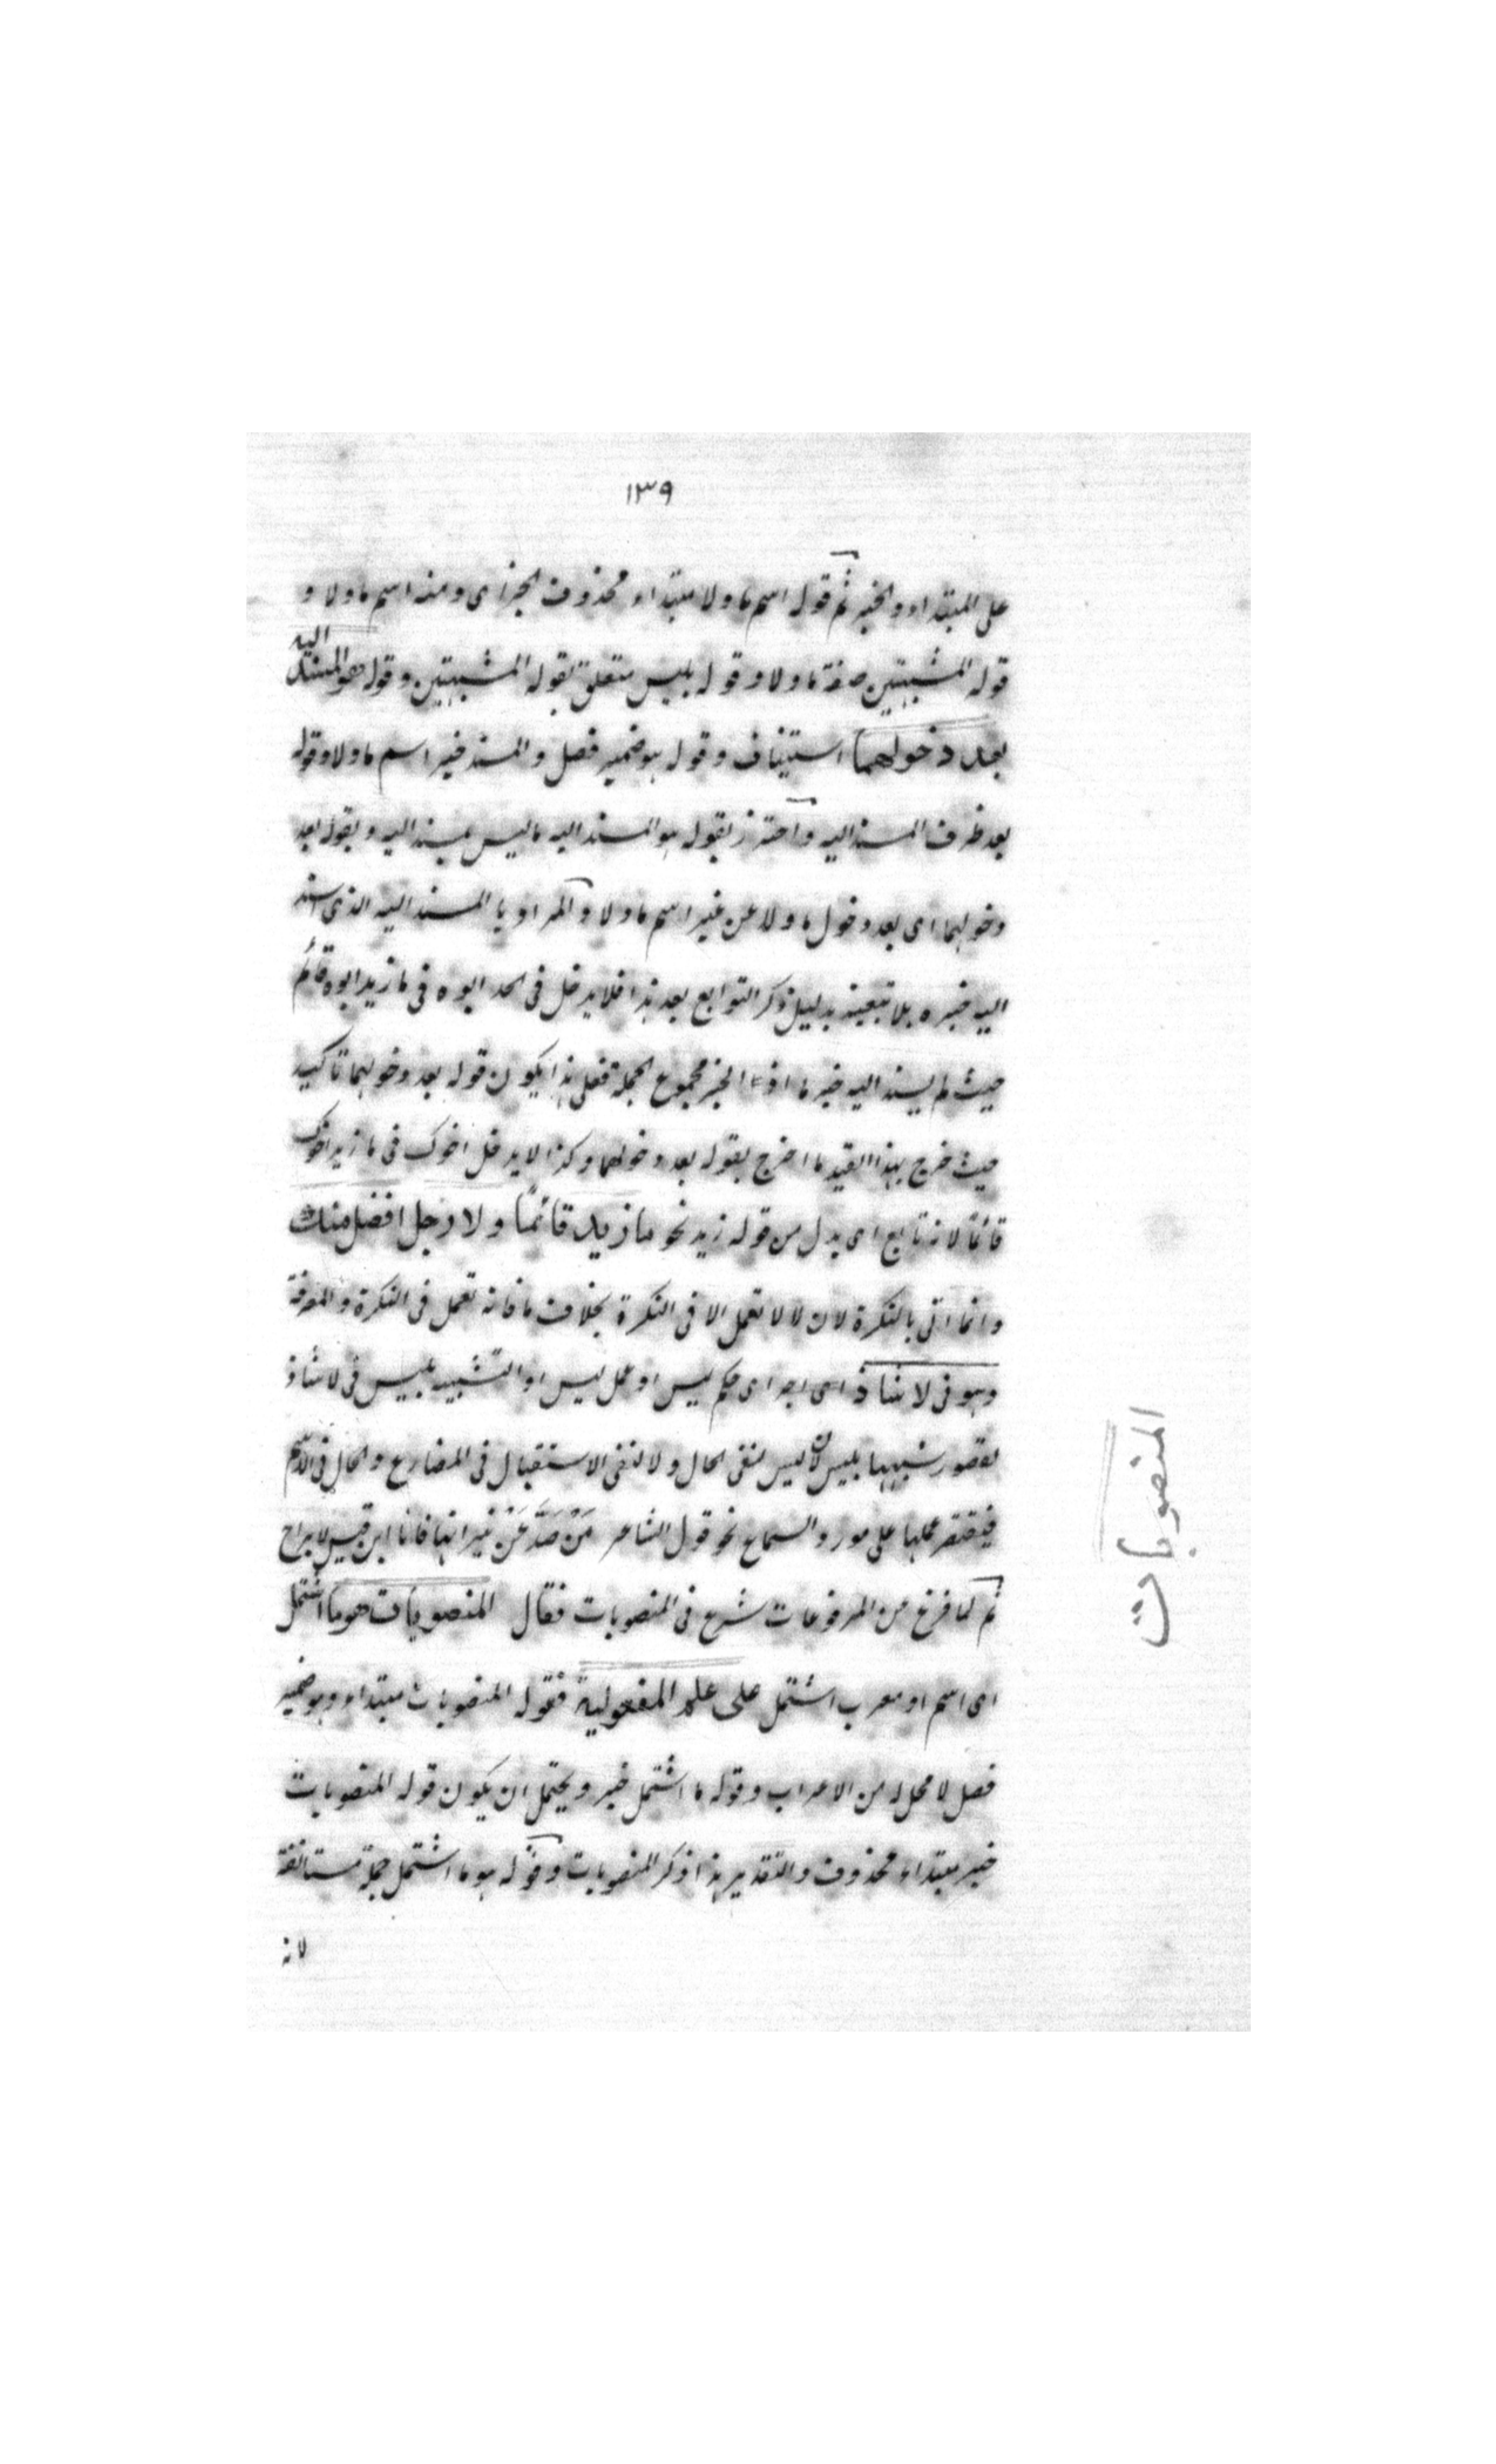 ١٣٩
على المبتداء والخبر ثم قوله اسم ما ولا مبتداء محذوف الخبر اى ومنه اسم ما ولا و
قوله المشبهتين صفة ما ولا وقوله بليس متعلق بقوله المشبهتين وقوله هو المسند اليه
بعد دخولهما استيناف وقوله هو ضمير فصل والمسند خبر اسم ما ولا وقوله
بعد ظرف المسند اليه واحترز بقوله هو المسند اليه ما ليس بمسند اليه وبقوله بعد
دخولهما اى بعد دخول ما ولا عن غير اسم ما ولا والمراد با المسند اليه الذى اسند
اليه خبره بلا تبعية بدليل ذكر التوابع بعد هذا فلا يدخل فى الحد ابوه فى ما زيد ابوه قائم
حيث لم يسند اليه خبر ما اذ الخبر مجموع الجملة فعلى هذا يكون قوله بعد دخولهما تاكيد
حيث خرج بهذا القيد ما اخرج بقوله بعد دخولهما وكذا لا يدخل اخوك فى ما زيد اخوك
قائمًا لانه تابع اى بدل من قوله زيد نحو ما زيد قائمًا ولا رجل افضل منك
وانما اتى بالنكرة لان لا لا تعمل الا فى النكرة بخلاف ما فانه تعمل فى النكرة والمعرفة
وهو فى لا شاذ اى اجراى حكم ليس او عمل ليس او التشبيه بليس فى لا شاذ
لقصور شبهها بليس لان ليس لنفى الحال ولا لنفى الاستقبال فى المضارع والحال فى الاسم
فيقتصر عملها على مورد السماع نحو قول الشاعر مَنْ صَدَّ عَنْ نيرانها فانا ابن قيس لا براح
ثم لما فرغ من المرفوعات شرع فى المنصوبات فقال المنصوبات هو ما اشتمل
اى اسم او معرب اشتمل على علم المفعولية فقوله المنصوبات مبتداء وهو ضمير
فصل لا محل له من الاعراب وقوله ما اشتمل خبر ويحتمل ان يكون قوله المنصوبات
خبر مبتداء محذوف والتقدير هذا ذكر المنصوبات وقوله هو ما اشتمل جملة مستانفة
لانه
المنصوبات